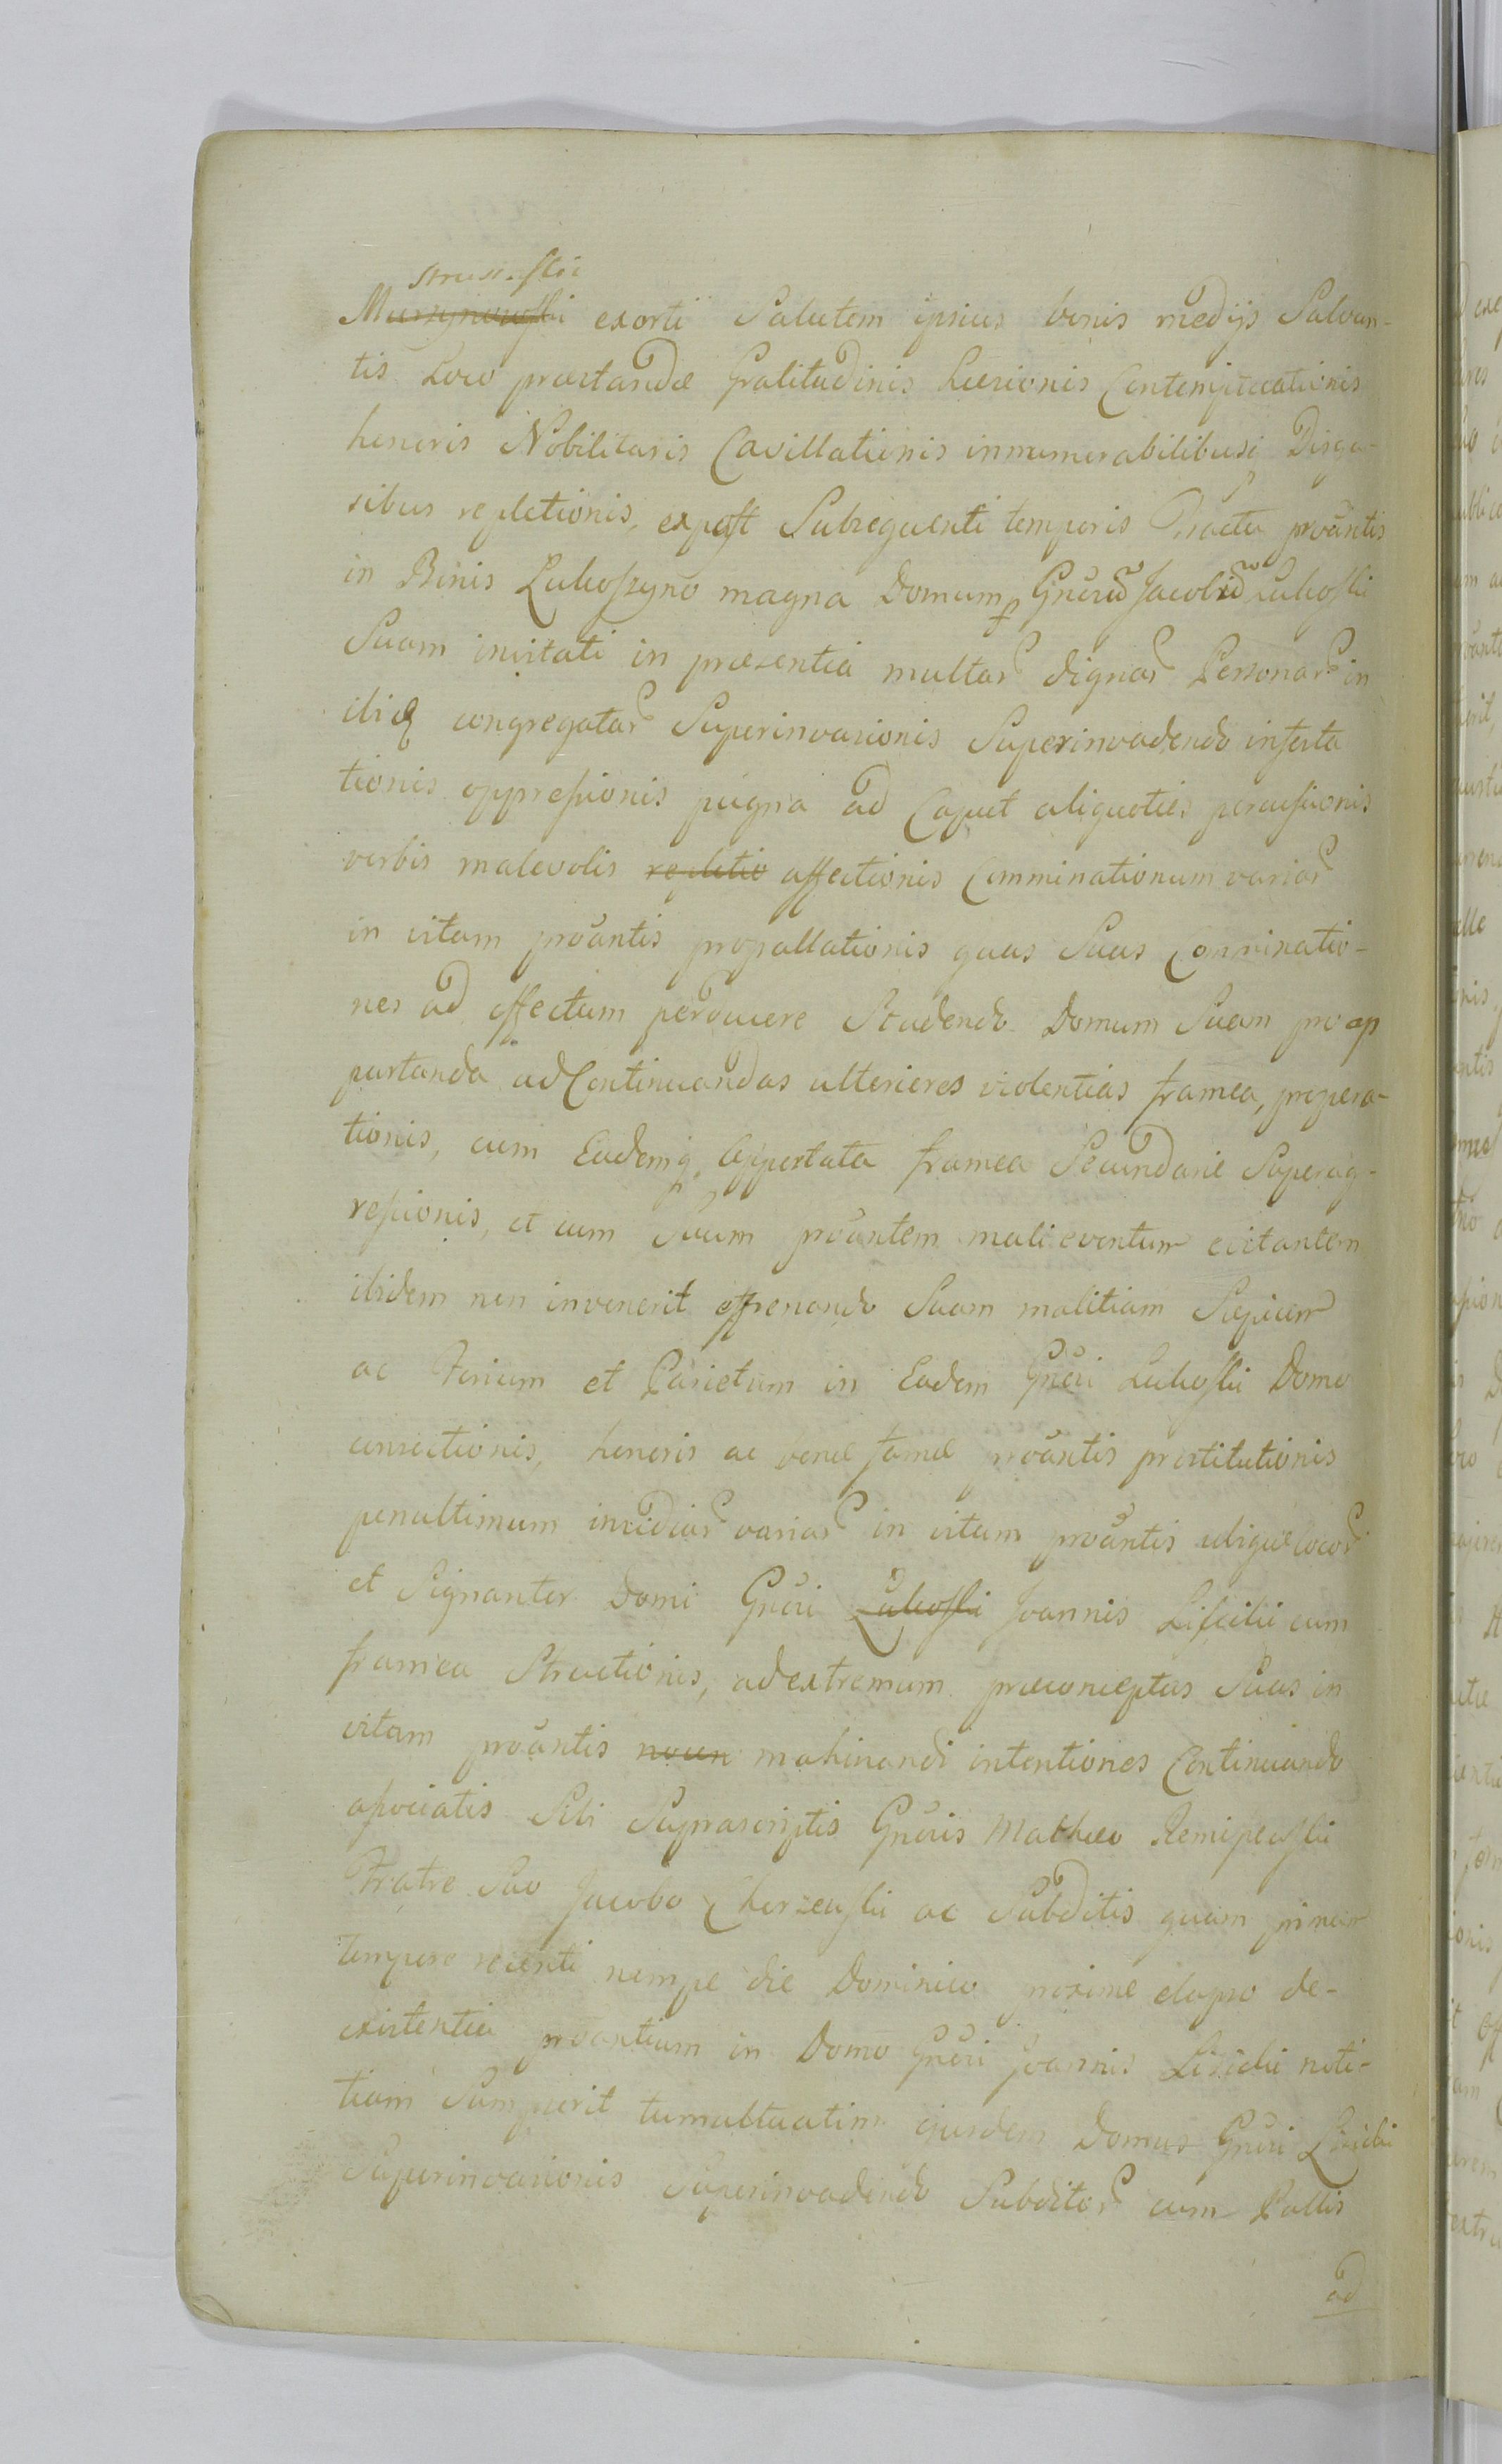 exorti Salutem ipsius bonis medijs Salvan-
tis Loco præstandæ Gratitudinis Læsionis Contempticationis
honoris Nobilitaris Cavillationis innumerabilibusq Disga-
sibus repletionis, expost Subsequenti temporis Tractu proãntis
in Bonis Luboszyno magna Domum p Gnerũ Jacobũ Luboski
Suam invitati in præsentia multar dignar Personar in
ibiq congregatar Superinvasionis Superinvadendo infesta
tionis oppressionis pugna ad Caput aliquoties percussionis
verbis malevolis repletio affectionis Comminationum variar
in vitam proãntis propallationis quas Suas Comminatio-
nes ad effectum perducere Studendo Domum Suam pro ap
portanda ad Continuandas ulteriores violentias framea, propera-
tionis, cum Eademq Apportata framea Secundarie Superag-
ressionis, et cum Suum proãntem mali eventum evitantem
ibidem non invenerit effrenando Suam malitiam Sepium
ac Forium et Parietum in Eadem Gnẽri Luboski Domo
consectionis, honoris ac bonæ famæ proãntis prostitutionis
penultimum insidiar variar in vitam proãntis ubique locor
et Signanter Domi Gnẽri Luboski Joannis Lisicki cum
framea Structionis, ad extremum præconceptas Suas in
vitam proãntis nocen mahinandi intentiones Continuando
associatis Sibi Suprascriptis Gnẽris Mathæo
Fratre Suo Jacobo ac Subditis quam primum
tempore recenti nempe die Dominico proxime elapso de-
existentia proãntium in Domo Gnẽri Joannis Lisicki noti-
tiam Sumpserit tumultuatim ejusdem Domus Gnẽri Lisicki
Superinvasionis Superinvadendo Subditor cum Pallis
ad